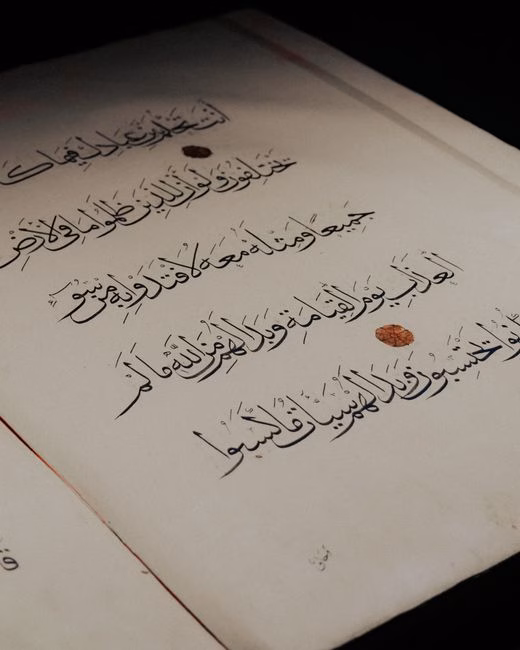 أَنتَ تَحْكُمُ بَيْنَ عِبَادِكَ فِيمَا كَا
يَخْتَلِفُونَ وَلَوْ أَنَّ لِلَّذِينَ ظَلَمُوا مَا فِي الْأَرْضِ
جَمِيعًا وَمِثْلَهُ مَعَهُ لَافْتَدَوْا بِهِ مِن سُوءِ
الْعَذَابِ يَوْمَ الْقِيَامَةِ وَبَدَا لَهُم مِّنَ اللَّهِ مَا لَمْ
يَكُونُوا يَحْتَسِبُونَ وَبَدَا لَهُمْ سَيِّئَاتُ مَا كَسَبُوا